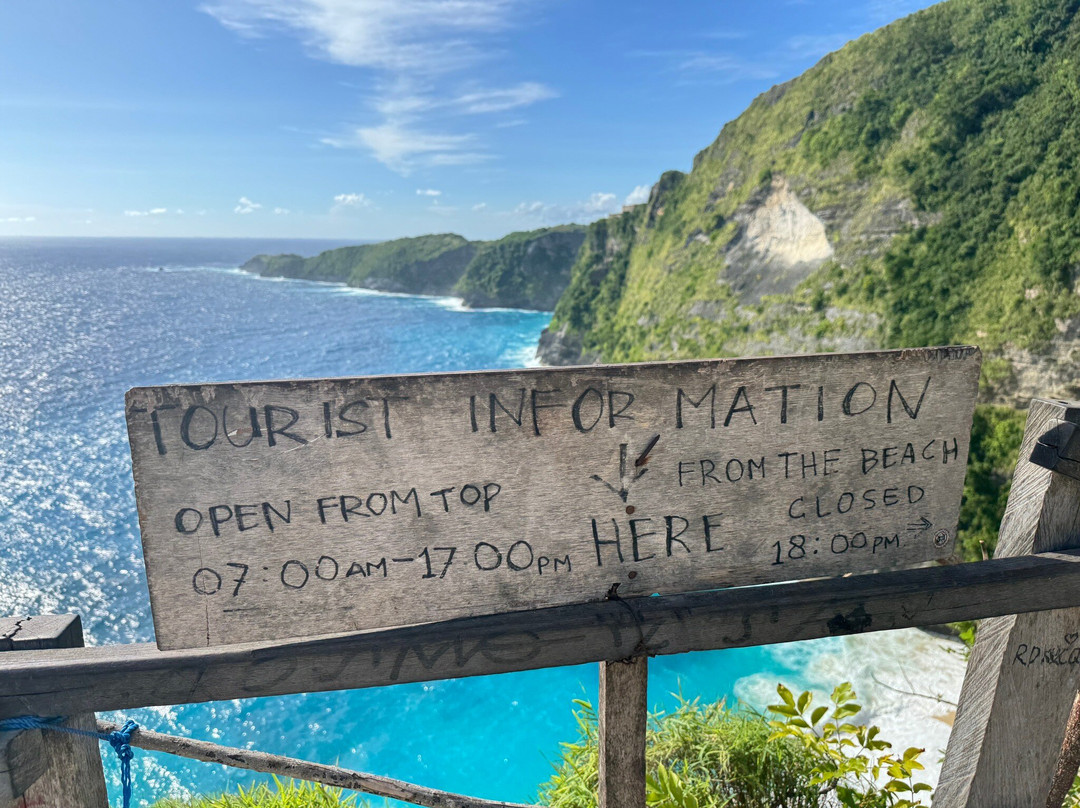 TOURIST INFORMATION
OPEN FROM TOP
07:00AM-17:00PM
HERE
FROM THE BEACH
CLOSED
18:00PM